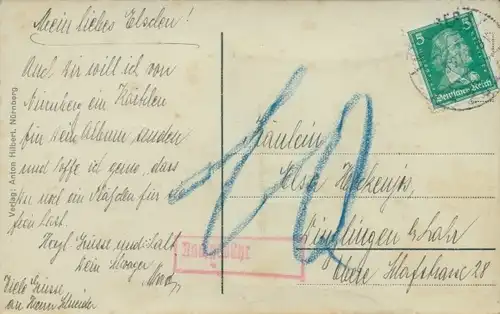 Mein liebes Elschen!
Auch Dir will ich von
Nürnberg ein Kärtchen
für Dein Album senden
und hoffe ich gerne, dass
Du noch ein Plätzchen für
frei hast.
Herzl. Grüsse und
Dein
Viele Grüsse
an Deine
Verlag: Anton Hilbert, Nürnberg
5 5
Deutsches Reich
10
Nachgebühr
Fräulein
Elsa
Dinglingen b/Lahr
Obere 28